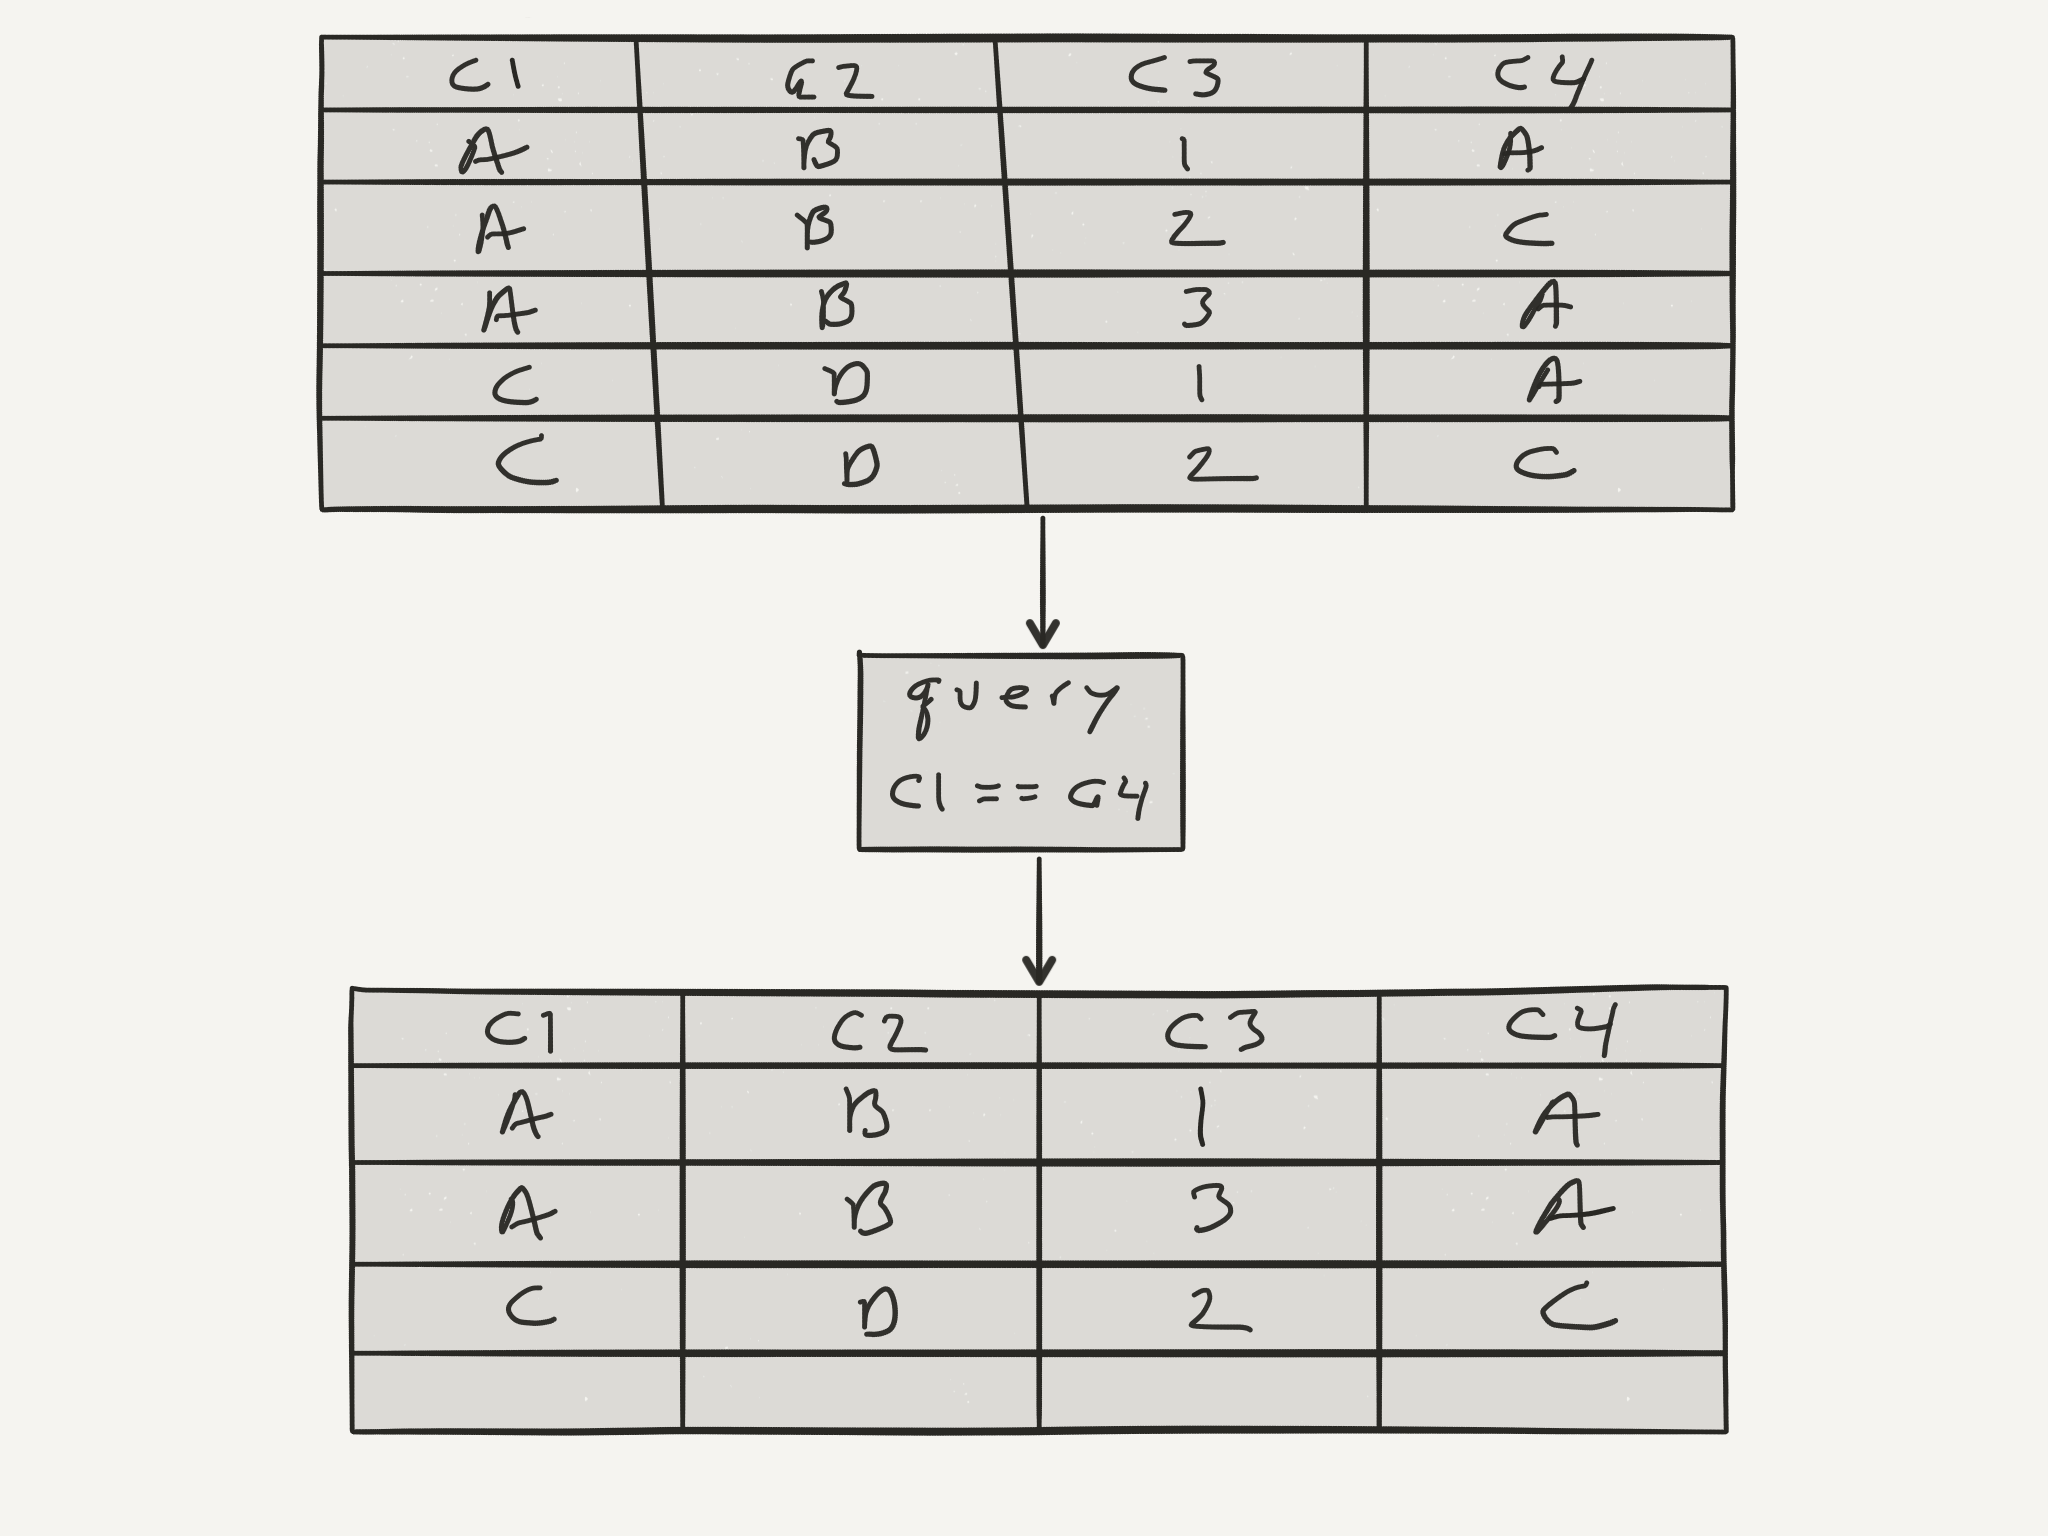 C1 C2 C3 C4
A B 1 A
A B 2 C
A B 3 A
C D 1 A
C D 2 C
query
C1 == C4
C1 C2 C3 C4
A B 1 A
A B 3 A
C D 2 C